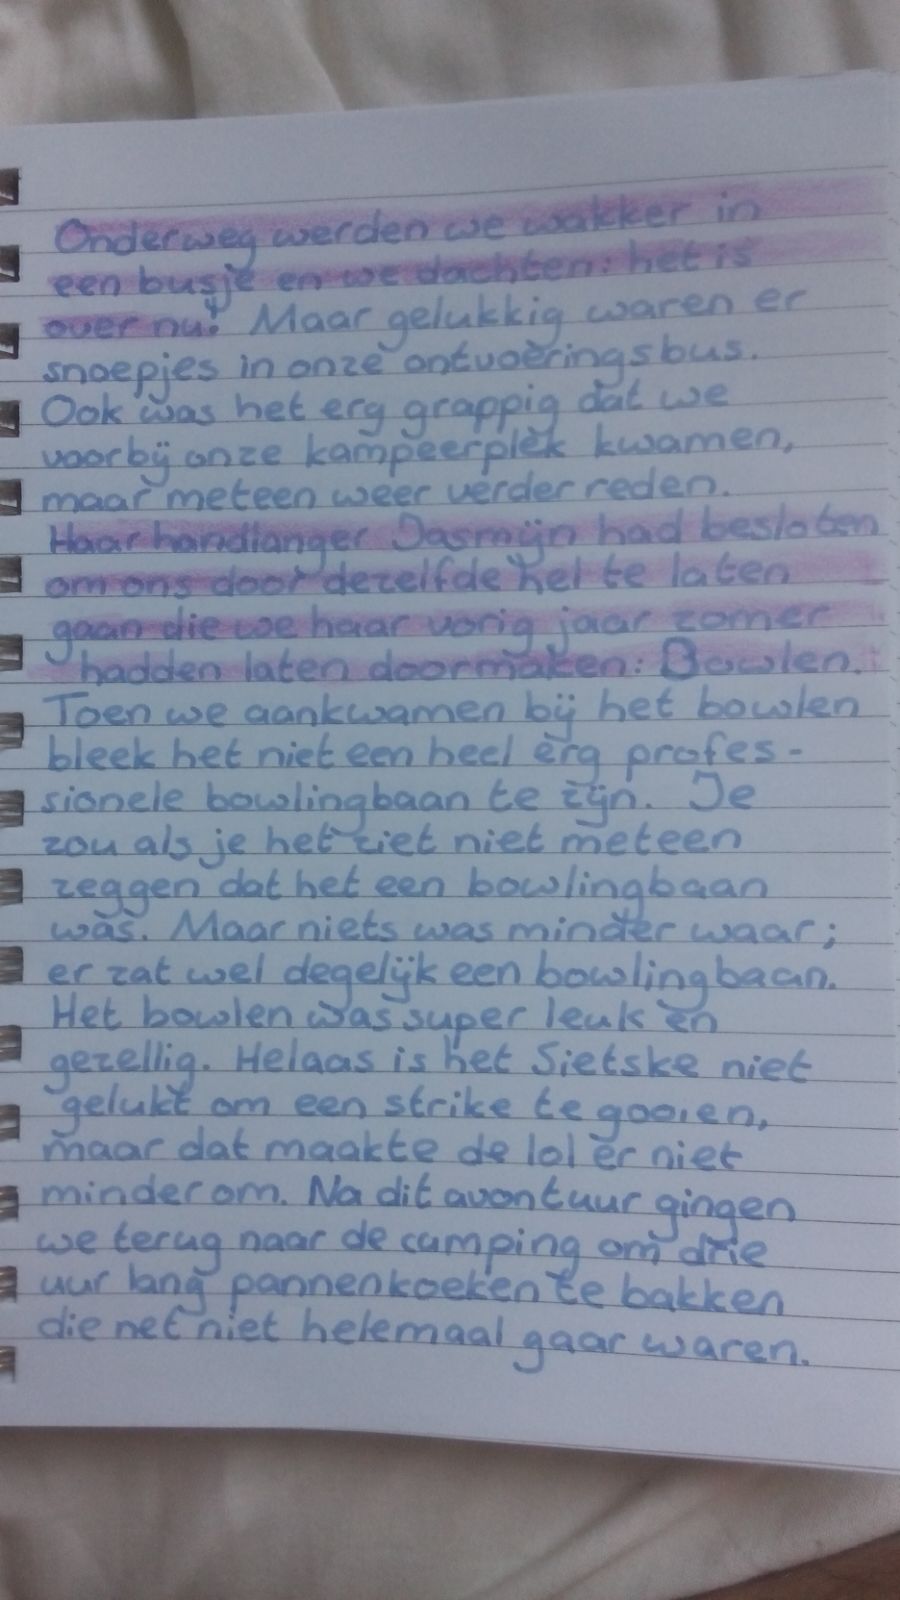 Onderweg werden we wakker in
een busje en we dachten: het is
over nu! Maar gelukkig waren er
snoepjes in onze ontvoeringsbus.
Ook was het erg grappig dat we
voorbij onze kampeerplek kwamen,
maar meteen weer verder reden.
Haar handlanger Jasmijn had besloten
om ons door dezelfde hel te laten
gaan die we haar vorig jaar zomer
hadden laten doormaken: Bowlen.
Toen we aankwamen bij het bowlen
bleek het niet een heel erg profes-
sionele bowlingbaan te zijn. Je
zou als je het ziet niet meteen
zeggen dat het een bowlingbaan
was. Maar niets was minder waar;
er zat wel degelijk een bowlingbaan.
Het bowlen was super leuk en
gezellig. Helaas is het Sietske niet
gelukt om een strike te gooien,
maar dat maakte de lol er niet
minder om. Na dit avontuur gingen
we terug naar de camping om drie
uur lang pannenkoeken te bakken
die net niet helemaal gaar waren.